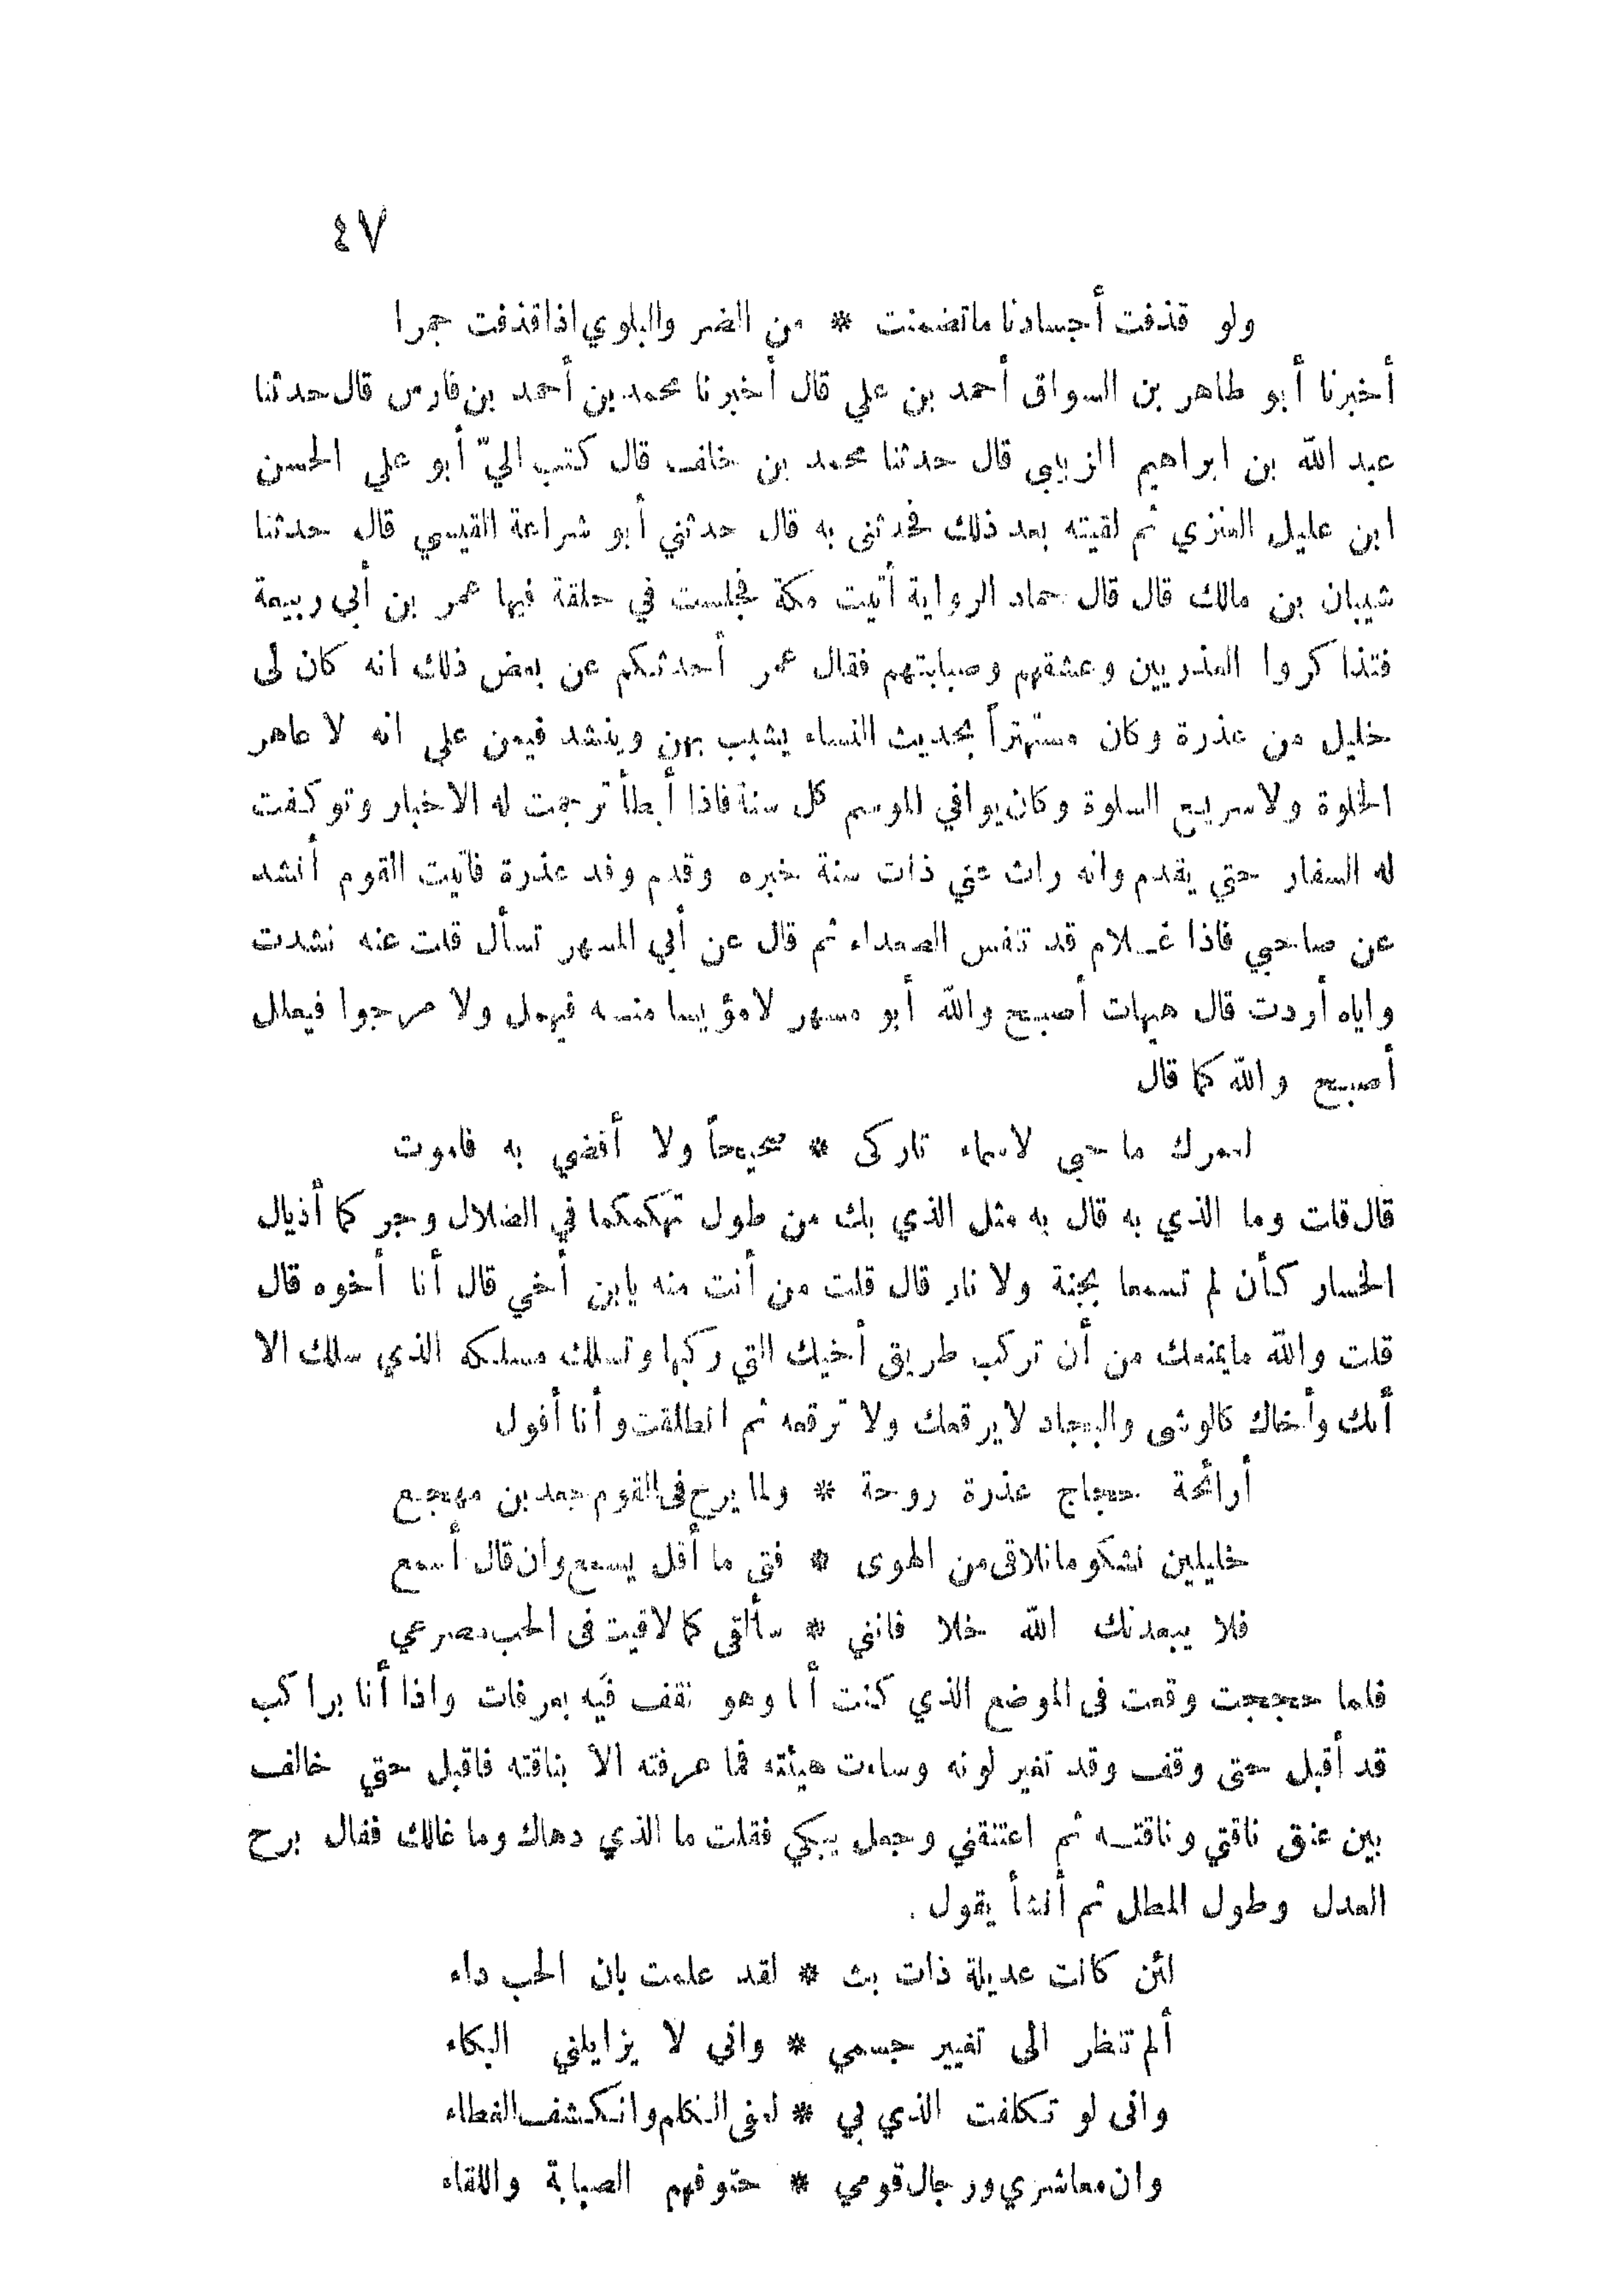 ٤٧
ولو قذفت أجسادنا ماتضمنت * من الضر والبلوي اذا قذفت جمرا
أخبرنا أبو طاهر بن السواق أحمد بن علي قال أخبرنا محمد بن أحمد بن فارس قال حدثنا
عبد الله بن ابراهيم الزبيبي قال حدثنا محمد بن خلف قال كتب اليّ أبو علي الحسن
ابن عليل العنزي ثم لقيته بعد ذلك فحدثني به قال حدثني أبو شراعة القيسي قال حدثنا
شيبان بن مالك قال قال حماد الرواية أتيت مكة فجلست في حلقة فيها عمر بن أبي ربيعة
فتذا كروا العذريين وعشقهم وصبابتهم فقال عمر أحدثكم عن بعض ذلك انه كان لى
خليل من عذرة وكان مستهتراً بحديث النساء يشبب بهن وينشد فيهن على انه لا عاهر
الخلوة ولا سريع السلوة وكان يوافي الموسم كل سنة فاذا أبطأ ترجمت له الاخبار وتوكفت
له السفار حتي يقدم وانه راث عني ذات سنة خبره وقدم وفد عذرة فاتيت القوم أنشد
عن صاحبي فاذا غلام قد تنفس الصعداء ثم قال عن أبي المسهر تسأل قلت عنه نشدت
واياه أردت قال هيهات أصبح والله أبو مسهر لا مؤيسا منه فيهمل ولا مرجوا فيعلل
أصبح والله كما قال
لعمرك ما حبي لاسماء تاركى * صحيحاً ولا أقضي به فاموت
قال قلت وما الذي به قال به مثل الذي بك من طول تهكمكما في الضلال وجركما أذيال
الخسار كأن لم تسمعا بجنة ولا نار قال قلت من أنت منه يابن أخي قال أنا أخوه قال
قلت والله مايمنعك من أن تركب طريق أخيك التي ركبها وتسلك مسلكه الذي سلك الا
أنك وأخاك كالوشى والبجاد لا يرقعك ولا ترقعه ثم انطلقت وأنا أقول
أرائحة حجاج عذرة روحة * ولما يرح فى القوم جعد بن مهجع
خليلين نشكو مانلاقى من الهوى * فتى ما أقل يسمع وان قال أسمع
فلا يبعدنك الله خلا فانني * سألقى كما لاقيت فى الحب مصرعي
فلما حججت وقفت فى الموضع الذي كنت أنا وهو نقف فيه بعرفات واذا أنا براكب
قد أقبل حتى وقف وقد تغير لونه وساءت هيئته فما عرفته الا بناقته فاقبل حتي خالف
بين عنق ناقتي وناقته ثم اعتنقني وجعل يبكي فقلت ما الذي دهاك وما غالك فقال برح
العذل وطول المطل ثم أنشأ يقول .
لئن كانت عديلة ذات بث * لقد علمت بان الحب داء
ألم تنظر الى تغيير جسمي * واني لا يزايلني البكاء
وانى لو تكلفت الذي بي * لعفى الكلم وانكشف الغطاء
وان معاشري ورجال قومي * حتوفهم الصبابة واللقاء